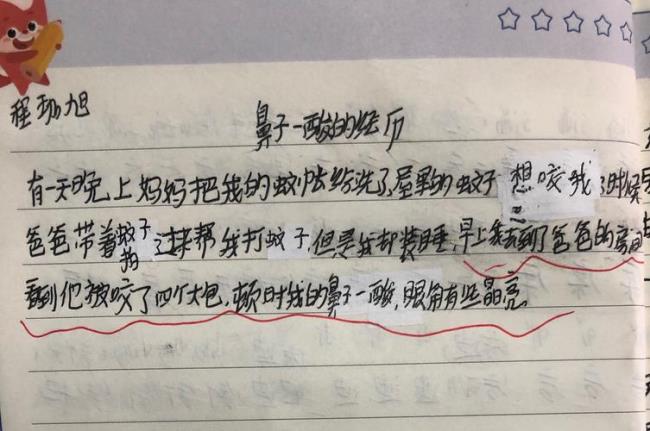 程劲旭
鼻子一酸的经历
有一天晚上妈妈把我的蚊帐给洗了,屋里的蚊子想咬我的时候
爸爸带着蚊子拍过来帮我打蚊子,但是我却装睡,早上我去到了爸爸的房间
看到他被咬了四个大包,顿时我的鼻子一酸,眼角有些晶亮。